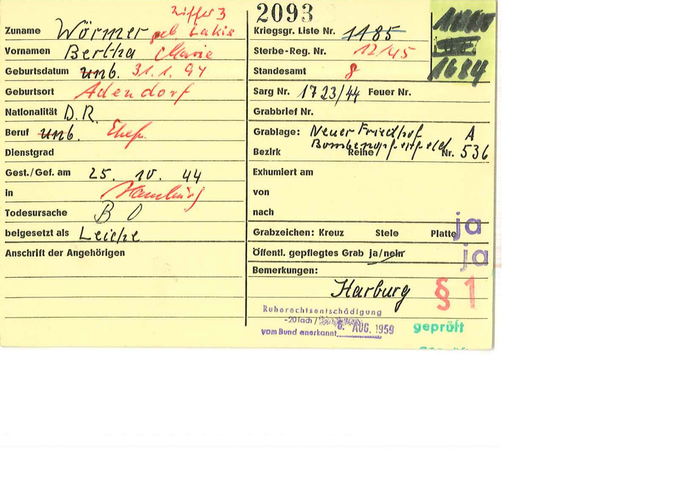 Ziffer 3
Zuname Wörmer geb Lakie
Vornamen Bertha Marie
Geburtsdatum unb. 31.1.94
Geburtsort Adendorf
Nationalität D.R.
Beruf unb. Ehefr.
Dienstgrad
Gest./Gef. am 25. 10. 44
in Hamburg
Todesursache B O
beigesetzt als Leiche
Anschrift der Angehörigen
2093
Kriegsgr. Liste Nr. 1185
Sterbe-Reg. Nr. 12/45
Standesamt 8
1684
Sarg Nr. 1723/44 Feuer Nr.
Grabbrief Nr.
Grablage: Neuer Friedhof A
Bombenopferfeld
Bezirk Reihe Nr. 536
Exhumiert am
von
nach
Grabzeichen: Kreuz Stele Platte ja
Öffentl. gepflegtes Grab ja/nein ja
Bemerkungen:
Harburg § 1
Ruherechtsentschädigung
-20fach/
vom Bund anerkannt 6. AUG. 1959
geprüft